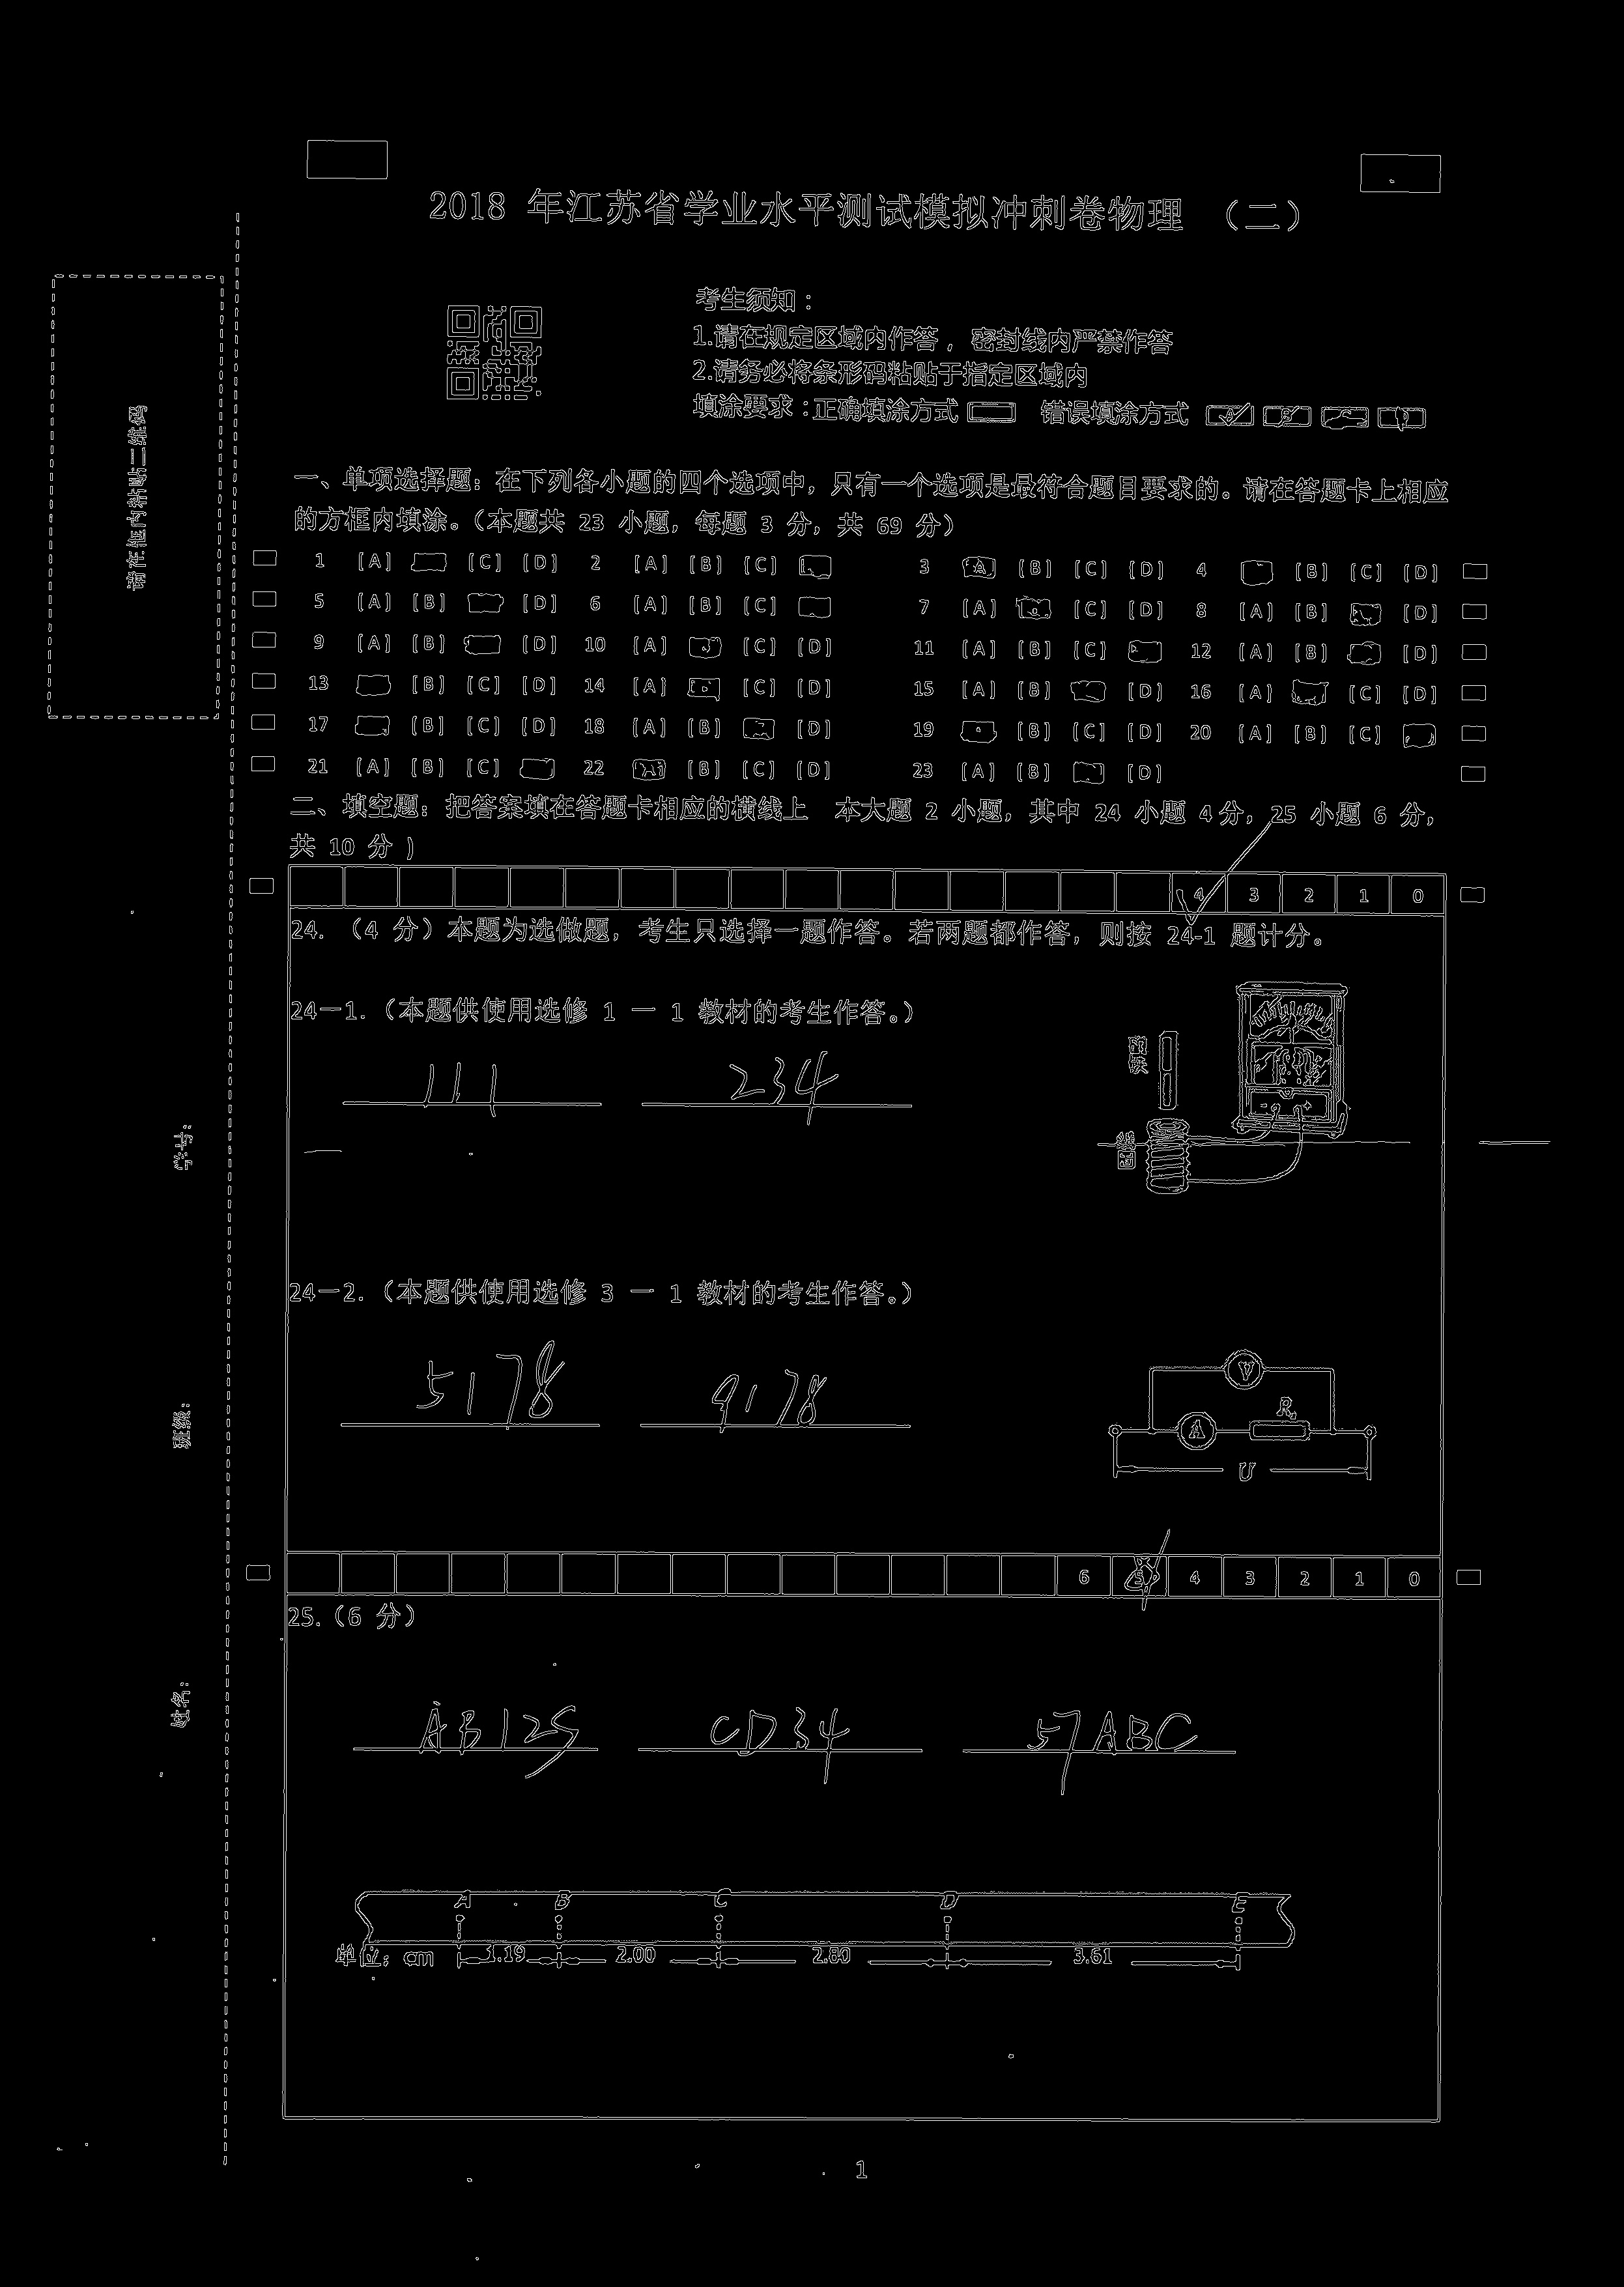 2018 年江苏省学业水平测试模拟冲刺卷物理 （二）
考生须知：
1.请在规定区域内作答，密封线内严禁作答
2.请务必将条形码粘贴于指定区域内
填涂要求：正确填涂方式 错误填涂方式
请在框内粘贴二维码
一、单项选择题：在下列各小题的四个选项中，只有一个选项是最符合题目要求的。请在答题卡上相应
的方框内填涂。（本题共 23 小题，每题 3 分，共 69 分）
1 [A] [C] [D] 2 [A] [B] [C] 3 [A] [B] [C] [D] 4 [B] [C] [D]
5 [A] [B] [D] 6 [A] [B] [C] 7 [A] [C] [D] 8 [A] [B] [D]
9 [A] [B] [D] 10 [A] [C] [D] 11 [A] [B] [C] 12 [A] [B] [D]
13 [B] [C] [D] 14 [A] [C] [D] 15 [A] [B] [D] 16 [A] [C] [D]
17 [B] [C] [D] 18 [A] [B] [D] 19 [B] [C] [D] 20 [A] [B] [C]
21 [A] [B] [C] 22 [B] [C] [D] 23 [A] [B] [D]
二、填空题：把答案填在答题卡相应的横线上 本大题 2 小题，其中 24 小题 4分，25 小题 6 分，
共 10 分 )
4 3 2 1 0
24. （4 分）本题为选做题，考生只选择一题作答。若两题都作答，则按 24-1 题计分。
24－1.（本题供使用选修 1 － 1 教材的考生作答。）
111 234
磁铁
线圈
学号：
24－2.（本题供使用选修 3 － 1 教材的考生作答。）
5178 9178
V
A
U
班级：
6 5 4 3 2 1 0
25.（6 分）
姓名：
AB125 CD34 57ABC
A B C D E
单位：cm 1.19 2.00 2.80 3.61
1